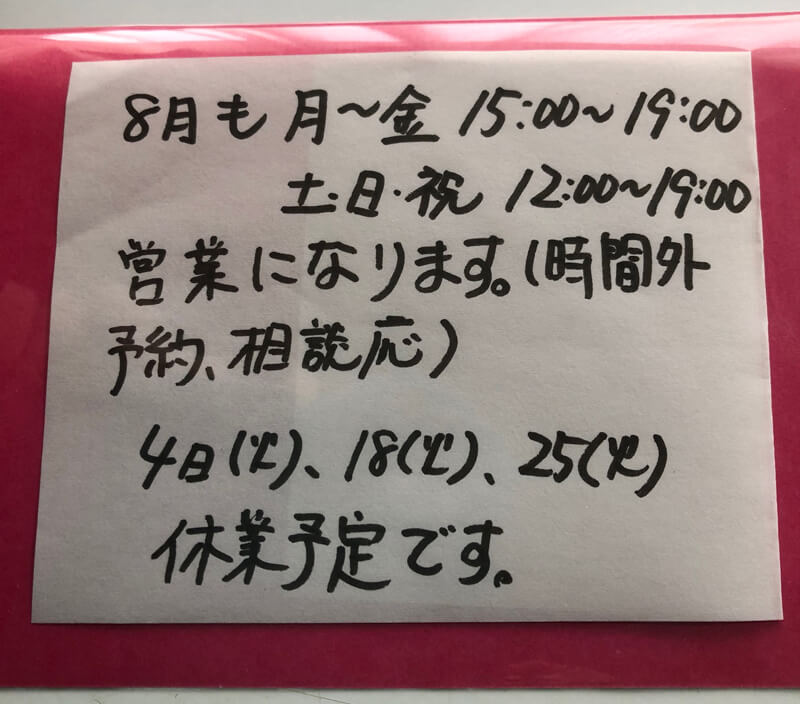 8月も 月〜金 15:00〜19:00
土・日・祝 12:00〜19:00
営業になります。(時間外
予約、相談応)
4日(火)、18(火)、25(火)
休業予定です。